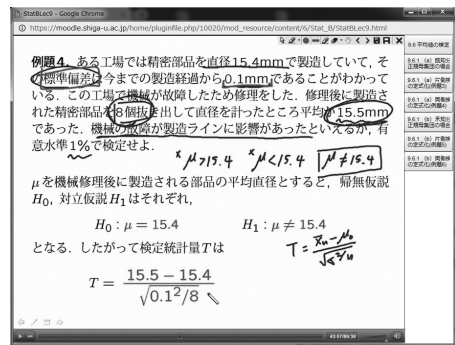 StatBLec9 - Google Chrome
https://moodle.shiga-u.ac.jp/home/pluginfile.php/10020/mod_resource/content/6/Stat_B/StatBLec9.html
例題4. ある工場では精密部品を直径15.4mmで製造していて, そ
の標準偏差は今までの製造経過から0.1mmであることがわかって
いる. この工場で機械が故障したため修理をした. 修理後に製造さ
れた精密部品を8個抜き出して直径を計ったところ平均が15.5mm
であった. 機械の故障が製造ラインに影響があったといえるか, 有
意水準1%で検定せよ.
× μ>15.4 × μ<15.4 μ≠15.4
μを機械修理後に製造される部品の平均直径とすると, 帰無仮説
H0, 対立仮説H1はそれぞれ,
H0 : μ = 15.4 H1 : μ ≠ 15.4
となる. したがって検定統計量Tは
T = (x̄n − μ0) / √(σ²/n)
T = (15.5 − 15.4) / √(0.1²/8)
9.6 平均値の検定
9.6.1 (a) 既知分
正規母集団の場合
9.6.1 (a) 片側検
の定式化(例題3)
9.6.1 (a) 両側検
の定式化(例題4)
9.6.1 (b) 未知分
正規母集団の場合
9.6.1 (b) 片側検
の定式化(例題5)
9.6.1 (b) 両側検
の定式化(例題6)